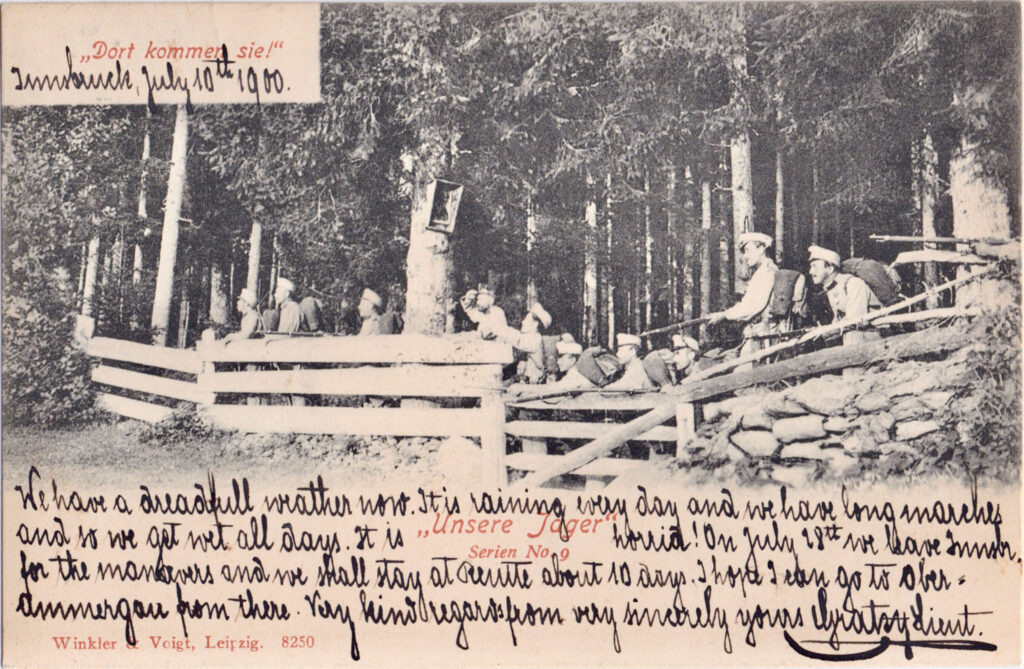 „Dort kommen sie!“
Innsbruck, July 10th 1900.
We have a dreadfull weather now. It is raining every day and we have long marches
and so we get wet all days. It is horrid! On July 28th we leave Innsbr.
„Unsere Jäger“
Serien No. 9
for the manövers and we shall stay at Reutte about 10 days. I hope I can go to Ober-
ammergau from there. Very kind regards from very sincerely yours
Winkler & Voigt, Leipzig. 8250